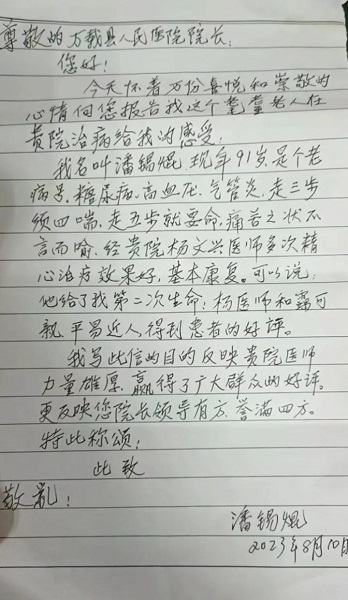 尊敬的万载县人民医院院长:
您好!
今天怀着万份喜悦和崇敬的
心情向您报告我这个耄耋老人在
贵院治病给我的感受。
我名叫潘锡焜,现年91岁,是个老
病号,糖尿病、高血压、气管炎,走三步
须四喘,走五步就要命,痛苦之状不
言而喻,经贵院杨文兴医师多次精
心治疗效果好,基本康复。可以说:
他给了我第二次生命;杨医师和蔼可
亲,平易近人,得到患者的好评。
我写此信的目的反映贵院医师
力量雄厚,赢得了广大群众的好评。
更反映您院长领导有方,誉满四方。
特此称颂!
此致
敬礼!
潘锡焜
2023年8月10日